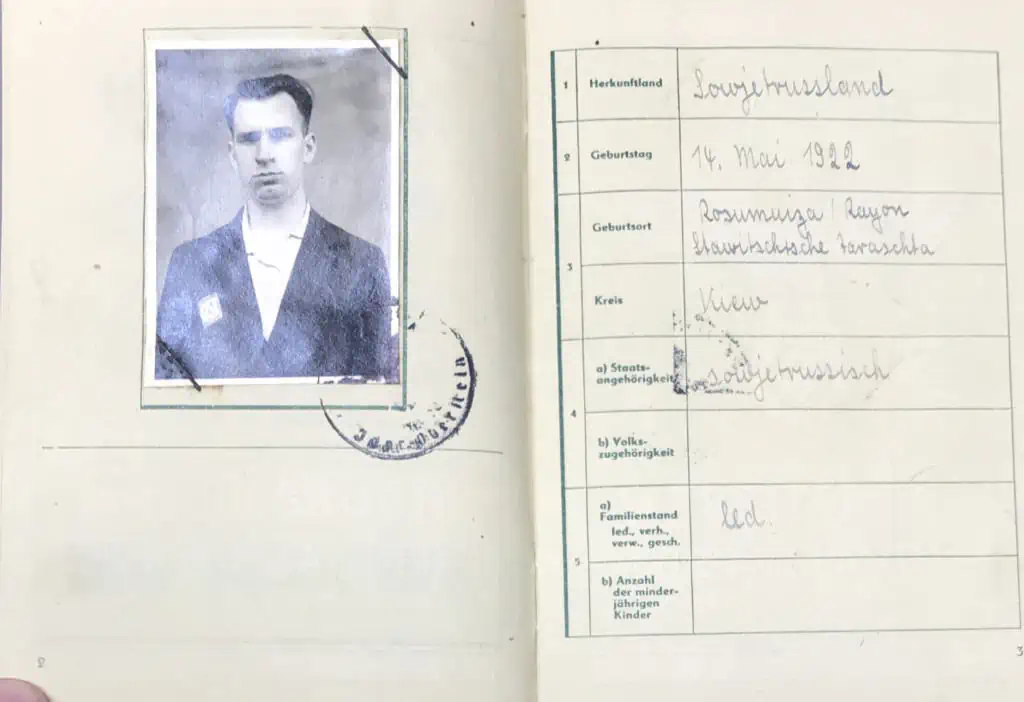 2
1 Herkunftland Sowjetrussland
2 Geburtstag 14. Mai 1922
3
Geburtsort Rosumuiza / Rayon
Stawitschische Taraschta
Kreis Kiew
4
a) Staats-
angehörigkeit sowjetrussisch
b) Volks-
zugehörigkeit
5
a)
Familienstand led.
led., verh.,
verw., gesch.
b) Anzahl
der minder-
jährigen
Kinder
3